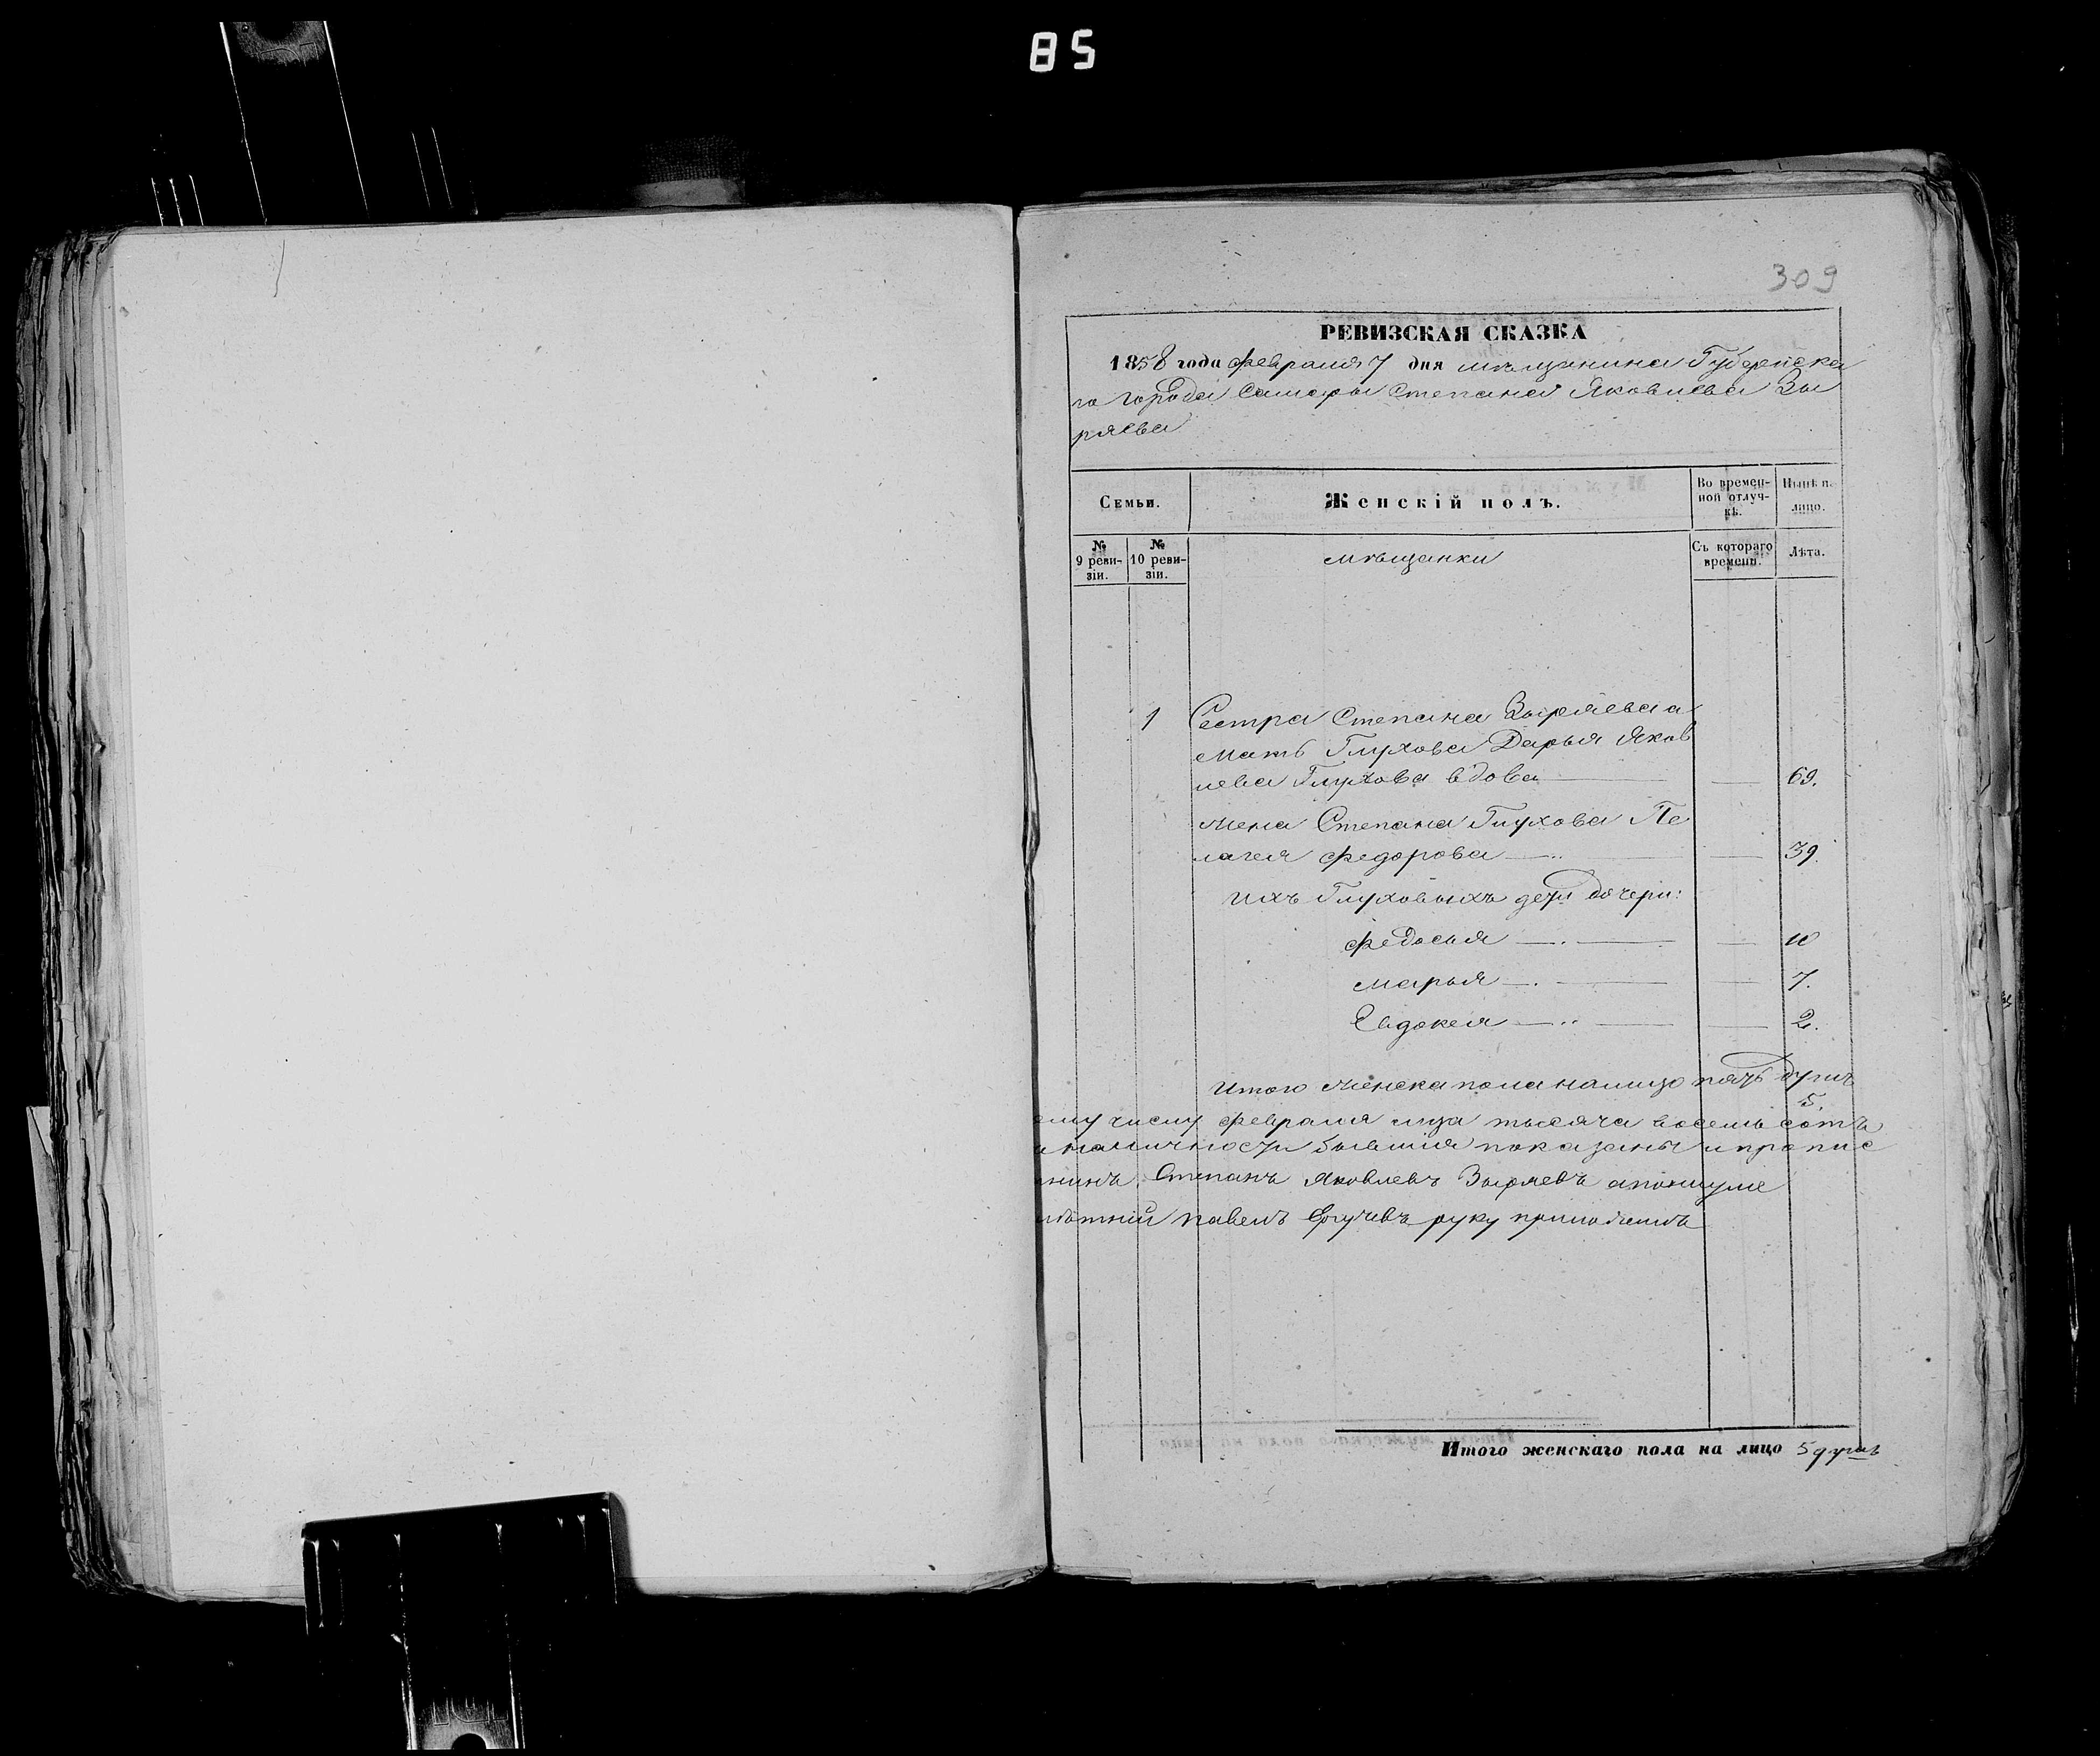 85
309
РЕВИЗСКАЯ СКАЗКА
1858 года февраля 7 дня мѣщанина Губернска
го города Самары Степана Яковлева Зы
ряева
Семьи.
Женскій полъ.
Во времен-
ной отлуч-
кѣ.
Нынѣ на
лицо.
№
9 реви-
зіи.
№
10 реви-
зіи.
мѣщанки
Съ котораго
времени.
Лѣта.
1 Сестра Степана Зыряева а
мать Глухова Дарья Яков
лева Глухова вдова 69.
Жена Степана Глухова Пе
лагея Федорова 39.
Ихъ Глуховыхъ дети дочери:
Федосья 10
Марья 7.
Евдокея 2.
Итого женска пола налицо пять душъ
5.
ему числу февраля мца тысяча восемь сотъ
наличности бывшия показаны и пропис
Степанъ Яковлевъ Зыряевъ
Павелъ руку приложилъ
Итого женскаго пола на лицо 5 душъ